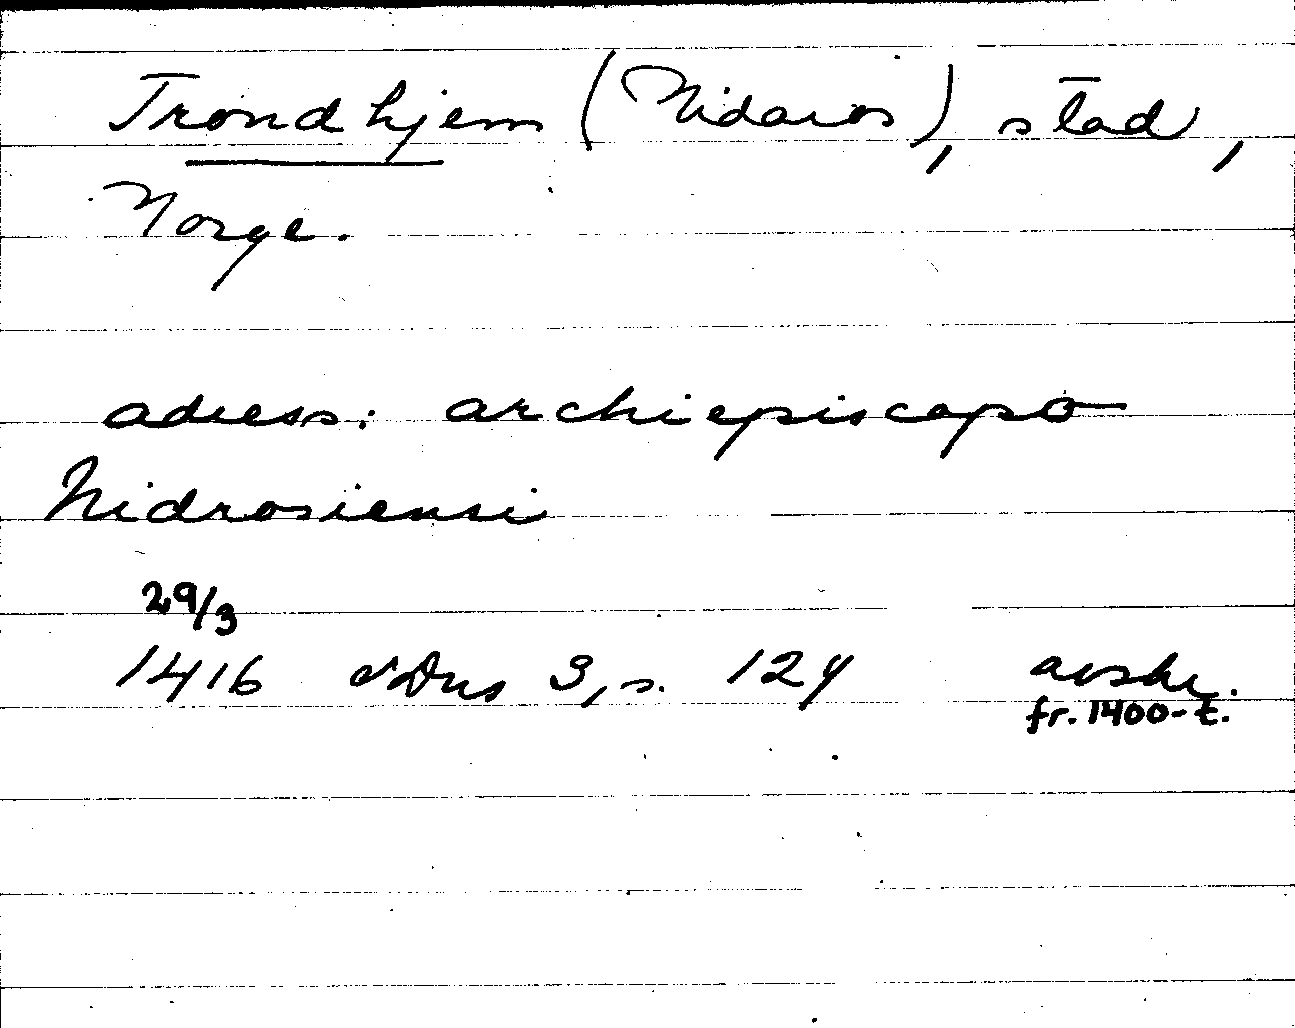 Trondhjem (Nidaros), stad,
Norge.
adress: archiepiscopo
Nidrosiensi
29/3
1416 SDns 3, s. 127 avskr.
fr. 1400-t.